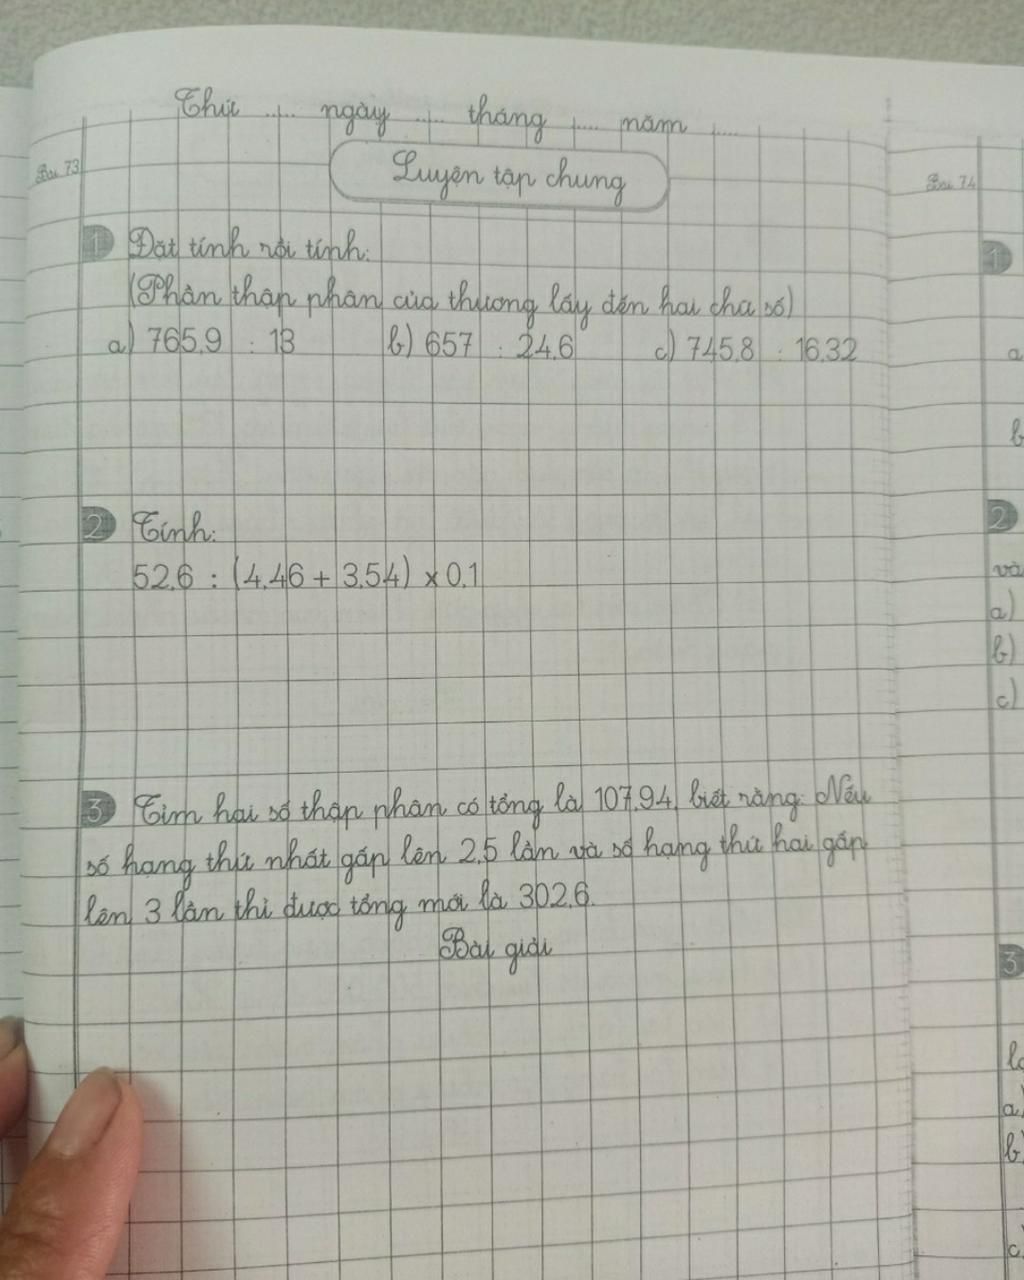 Thứ ..... ngày ..... tháng ..... năm .....
Bài 73
Luyện tập chung
Bài 74
1 Đặt tính rồi tính:
(Phần thập phân của thương lấy đến hai chữ số)
a) 765,9 : 13 b) 657 : 24,6 c) 745,8 : 16,32
2 Tính:
52,6 : (4,46 + 3,54) x 0,1
3 Tìm hai số thập phân có tổng là 107,94, biết rằng: Nếu
số hạng thứ nhất gấp lên 2,5 lần và số hạng thứ hai gấp
lên 3 lần thì được tổng mới là 302,6.
Bài giải
1
a
b
2
và
a)
b)
c)
3
a)
b)
c